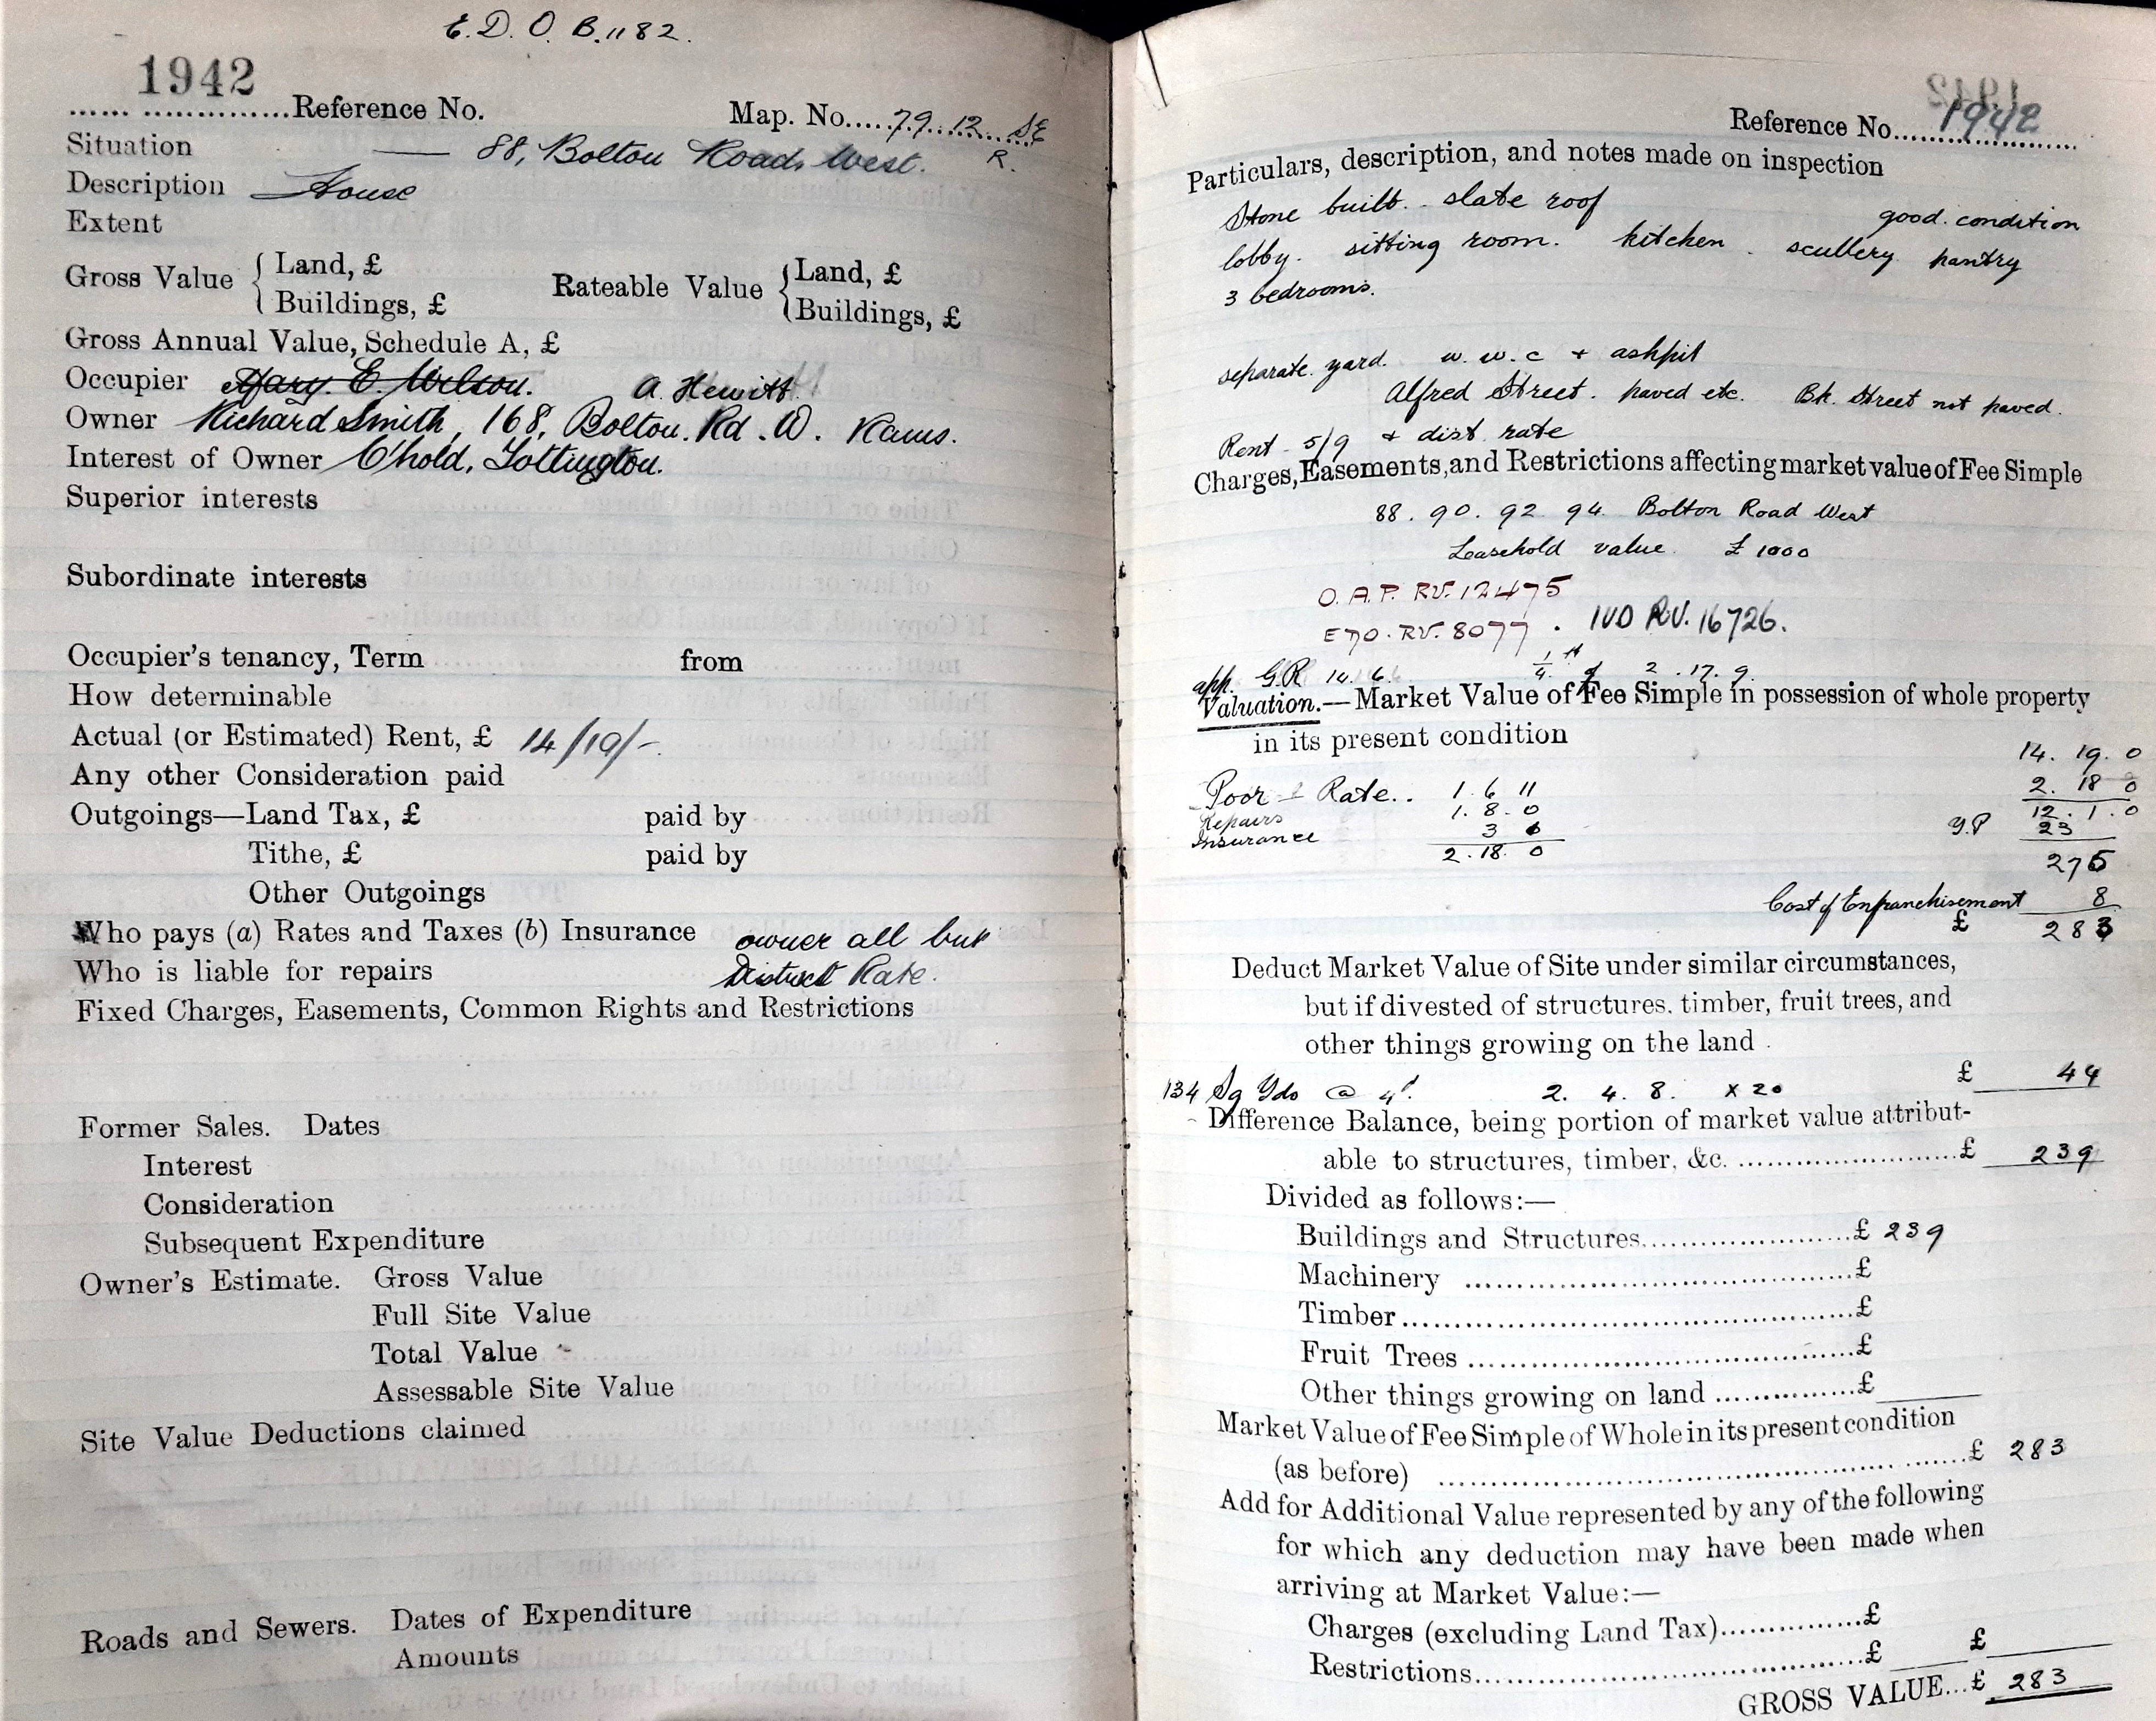 E. D. O. B. 1182.
1942
...... ..............Reference No. Map. No..... 79. 12. SE
Situation — 88, Bolton Road, West. R.
Description House
Extent
Gross Value { Land, £ Rateable Value { Land, £
Buildings, £ Buildings, £
Gross Annual Value, Schedule A, £
Occupier Mary. E. Wilson. A. Hewitt
Owner Richard Smith, 168, Bolton. Rd. W. Rams.
Interest of Owner C'hold, Tottington.
Superior interests
Subordinate interests
Occupier's tenancy, Term from
How determinable
Actual (or Estimated) Rent, £ 14/19/-.
Any other Consideration paid
Outgoings—Land Tax, £ paid by
Tithe, £ paid by
Other Outgoings
Who pays (a) Rates and Taxes (b) Insurance owner all but
Who is liable for repairs District Rate.
Fixed Charges, Easements, Common Rights and Restrictions
Former Sales. Dates
Interest
Consideration
Subsequent Expenditure
Owner's Estimate. Gross Value
Full Site Value
Total Value
Assessable Site Value
Site Value Deductions claimed
Roads and Sewers. Dates of Expenditure
Amounts
Reference No..... 1942
Particulars, description, and notes made on inspection
Stone built. slate roof good. condition
lobby. sitting room. kitchen. scullery pantry
3 bedrooms.
separate. yard. w. w. c + ashpit
Alfred Street. paved etc. Bk. Street not paved.
Rent - 5/9 + dist. rate
Charges, Easements, and Restrictions affecting market value of Fee Simple
88. 90. 92. 94. Bolton Road West
Leasehold value £ 1000
O. A. P. RV. 12475
EDO. RV. 8077. IVD R.V. 16726.
app. G.R 14. 6. 1/4 th of 2. 17. 9.
Valuation.—Market Value of Fee Simple in possession of whole property
in its present condition
14. 19. 0
Poor Rate.. 1. 6 11 2. 18 0
Repairs 1. 8. 0 12. 1. 0
Insurance 3 Y.P 23
2. 18. 0 275
Cost of Enfranchisement 8
£ 283
Deduct Market Value of Site under similar circumstances,
but if divested of structures, timber, fruit trees, and
other things growing on the land
134 Sq Yds @ 4d. 2. 4. 8. x 20 £ 44
Difference Balance, being portion of market value attribut-
able to structures, timber, &c. ..........£ 239
Divided as follows:—
Buildings and Structures..........£ 239
Machinery ..........£
Timber..........£
Fruit Trees ..........£
Other things growing on land ..........£
Market Value of Fee Simple of Whole in its present condition
(as before) ..........£ 283
Add for Additional Value represented by any of the following
for which any deduction may have been made when
arriving at Market Value:—
Charges (excluding Land Tax)..........£
Restrictions..........£ £
GROSS VALUE...£ 283